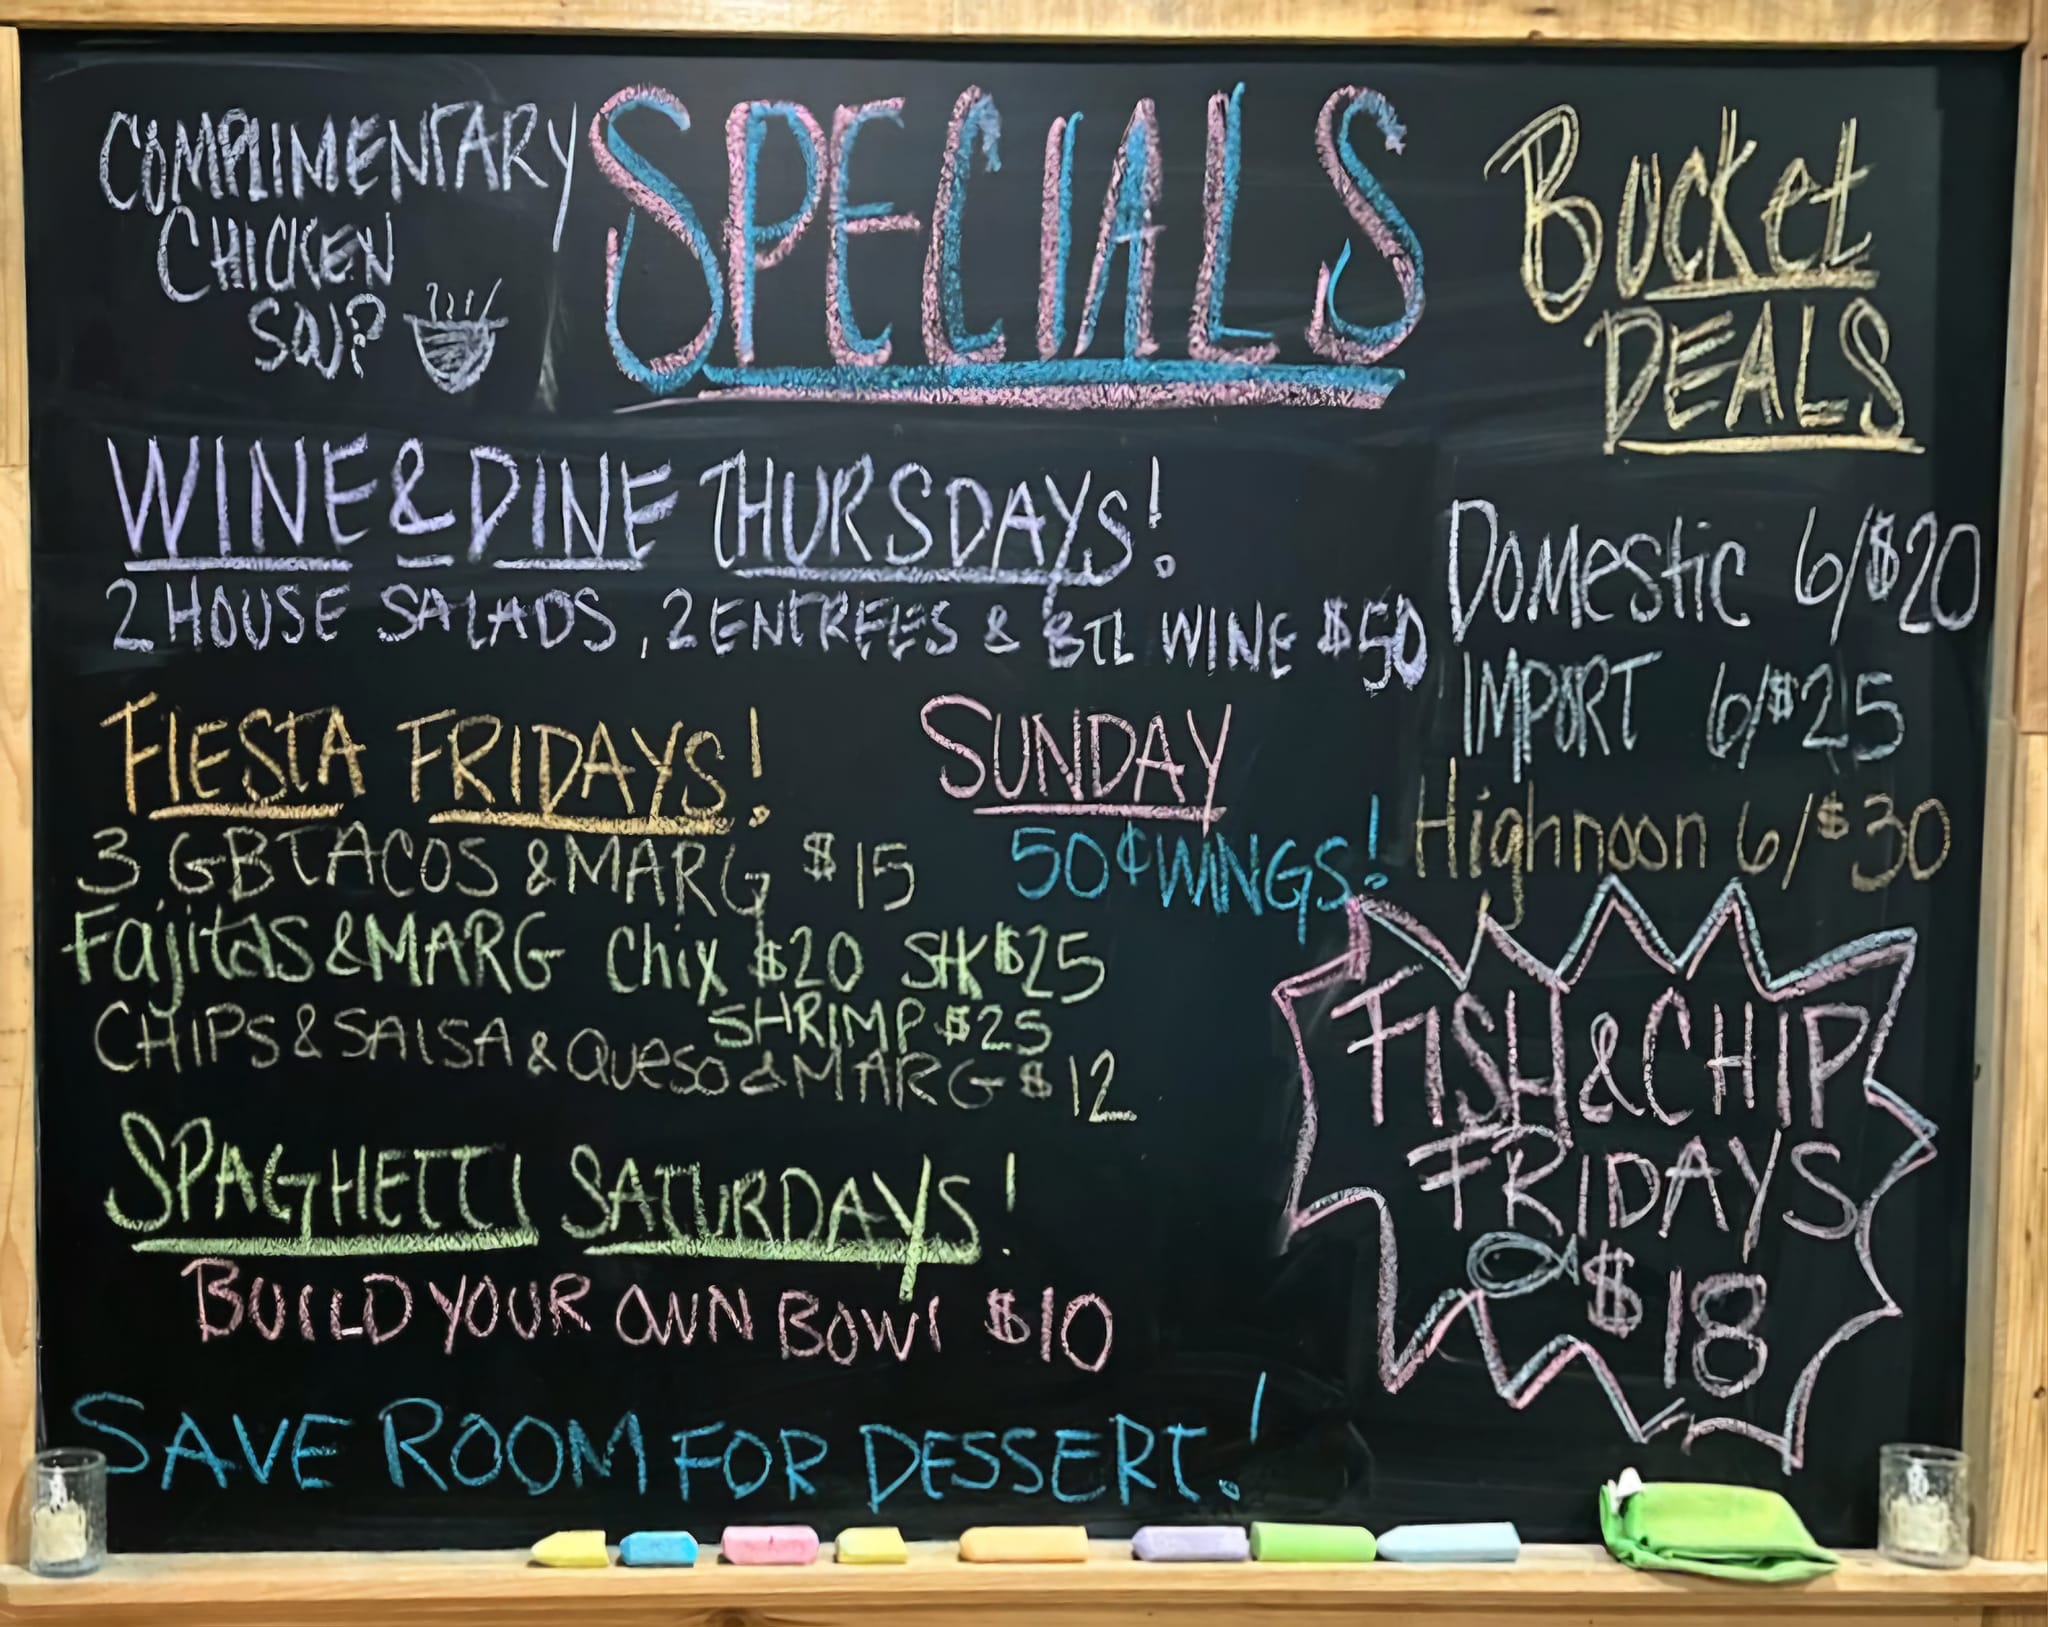 COMPLIMENTARY
CHICKEN
SOUP
SPECIALS
BUCKET
DEALS
WINE & DINE THURSDAYS!
2 HOUSE SALADS, 2 ENTREES & BTL WINE $50
Domestic 6/$20
IMPORT 6/$25
Highnoon 6/$30
FIESTA FRIDAYS!
3 GB TACOS & MARG $15
Fajitas & MARG Chix $20 STK $25
SHRIMP $25
CHIPS & SALSA & Queso & MARG $12
SUNDAY
50¢ WINGS!
FISH & CHIP
FRIDAYS
$18
SPAGHETTI SATURDAYS!
BUILD YOUR OWN BOWL $10
SAVE ROOM FOR DESSERT!